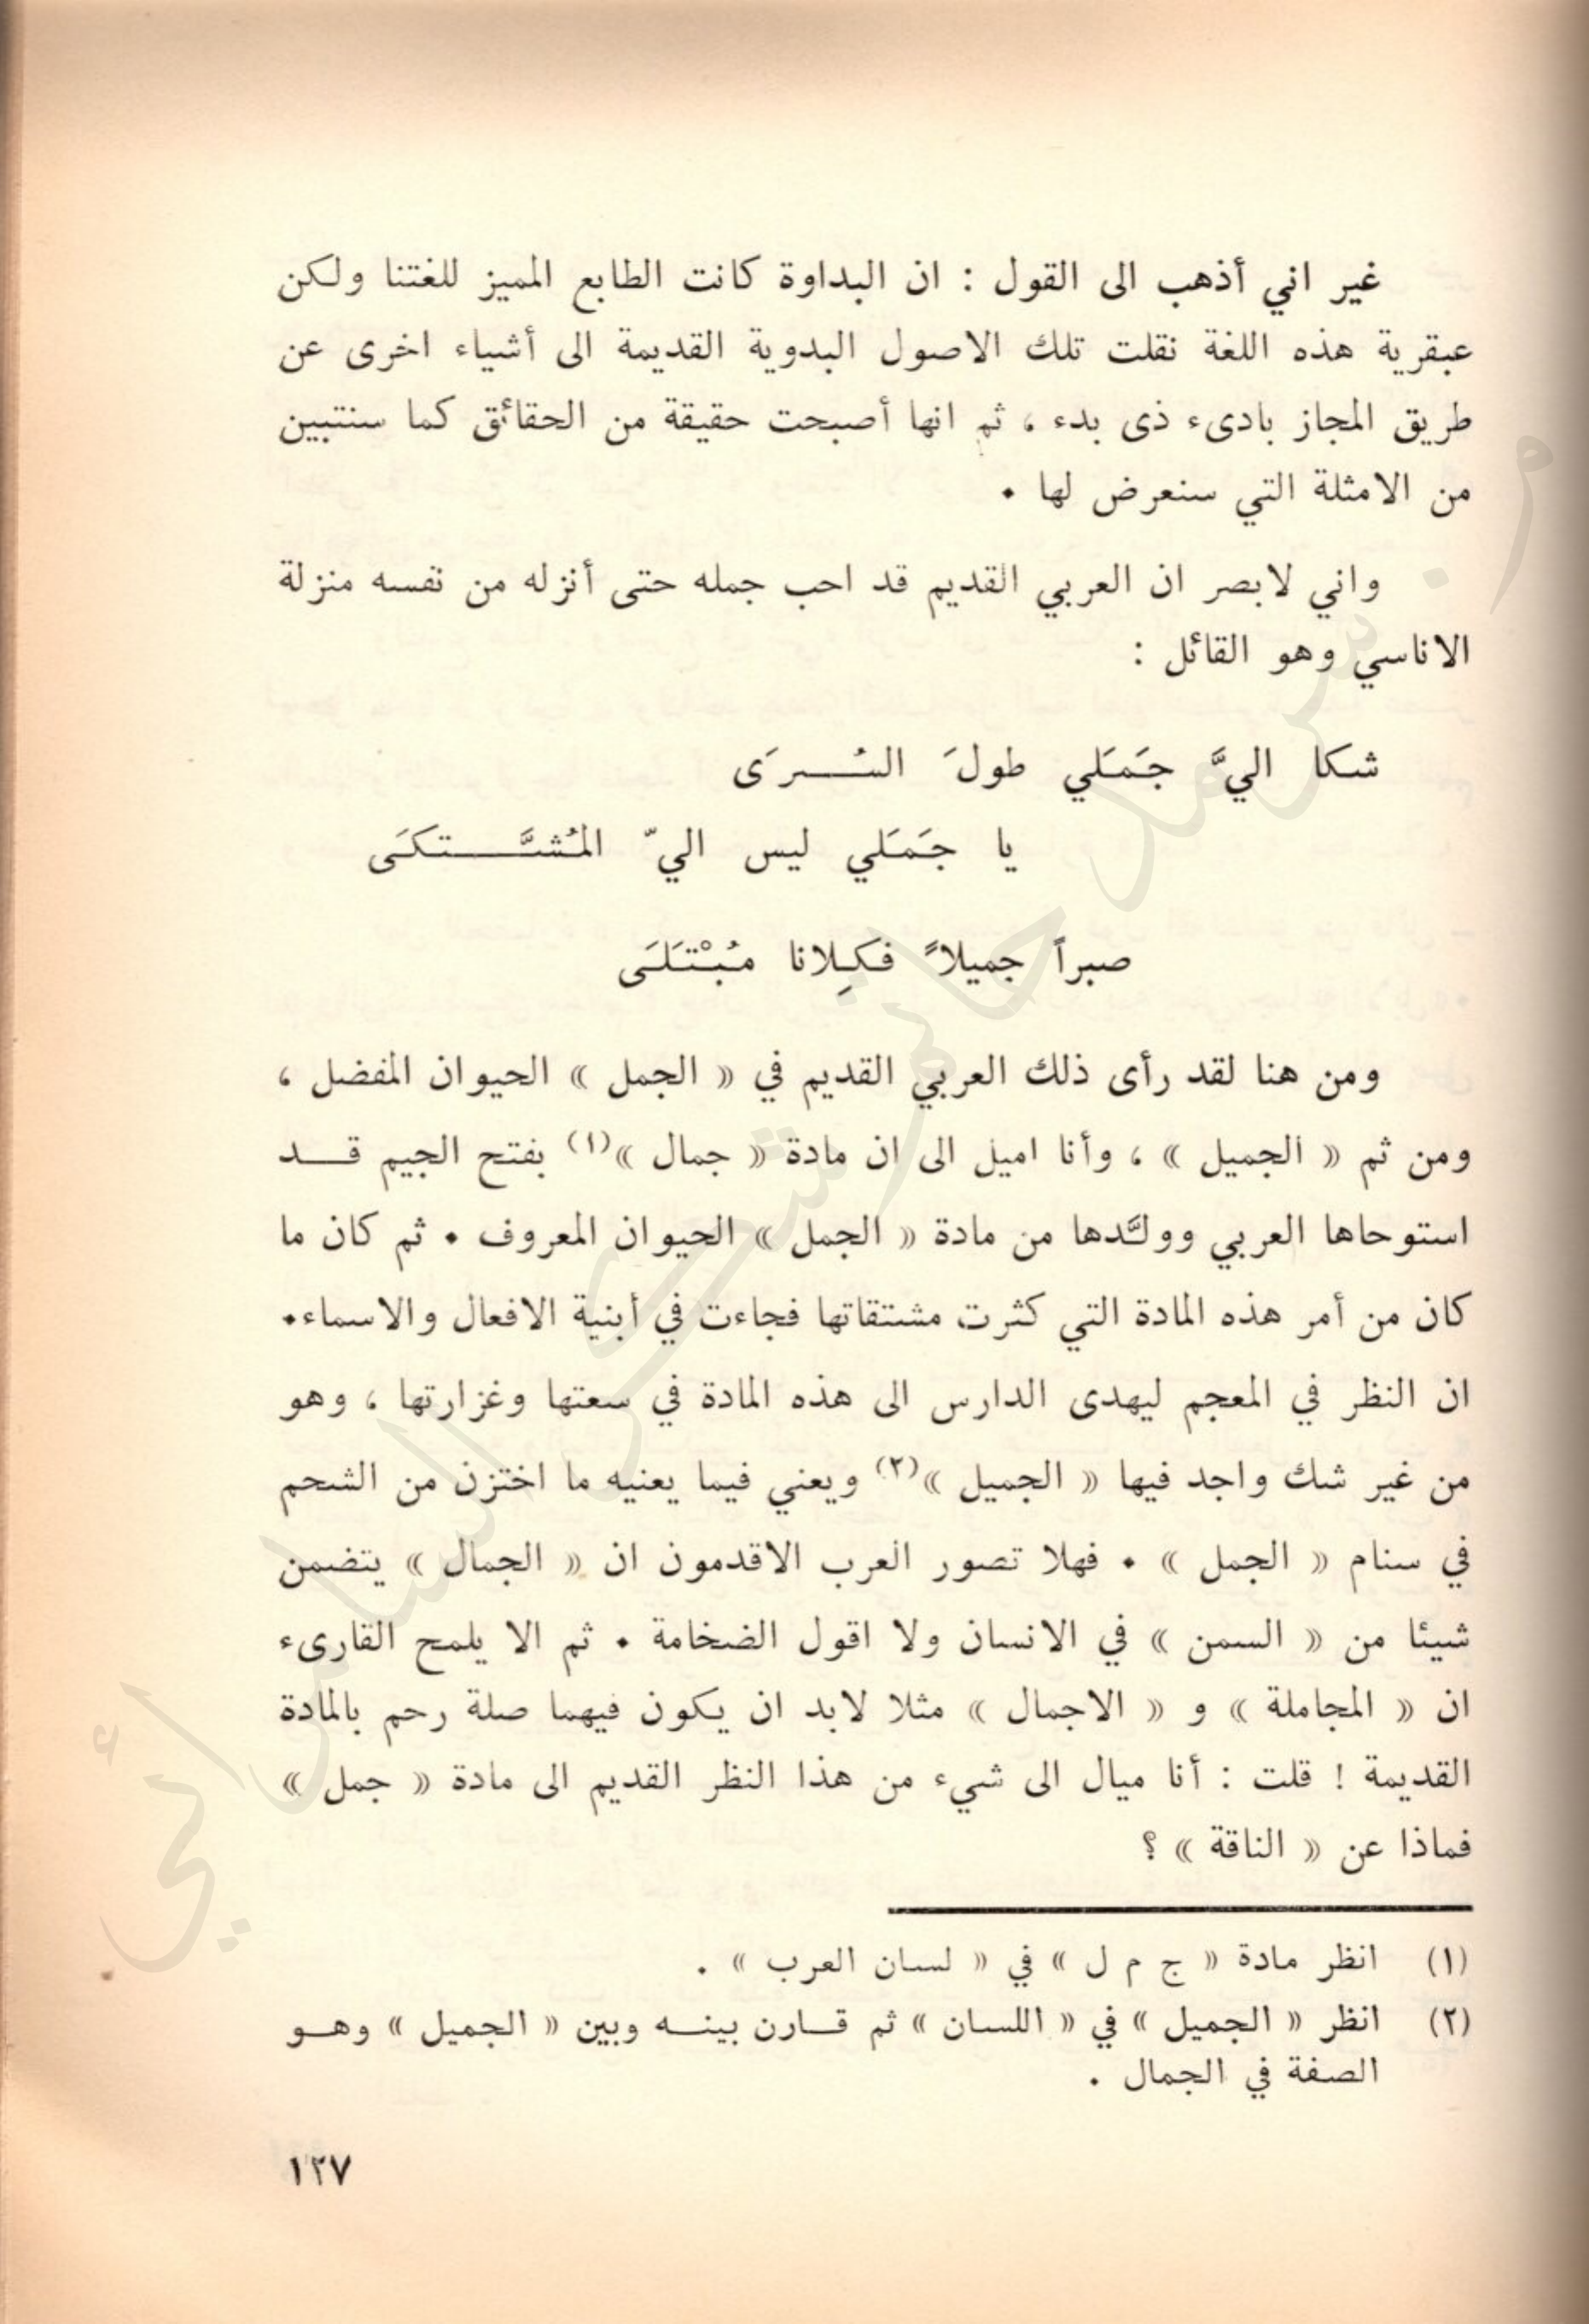 غير اني أذهب الى القول : ان البداوة كانت الطابع المميز للغتنا ولكن
عبقرية هذه اللغة نقلت تلك الاصول البدوية القديمة الى أشياء اخرى عن
طريق المجاز بادىء ذى بدء ، ثم انها أصبحت حقيقة من الحقائق كما سنتبين
من الامثلة التي سنعرض لها .
واني لابصر ان العربي القديم قد احب جمله حتى أنزله من نفسه منزلة
الاناسي وهو القائل :
شكا اليَّ جَمَلي طولَ السُـــرَى
يا جَمَلي ليس اليّ المُشتَـــتكَى
صبراً جميلاً فكِلانا مُبْتَلَى
ومن هنا لقد رأى ذلك العربي القديم في « الجمل » الحيوان المفضل ،
ومن ثم « الجميل » ، وأنا اميل الى ان مادة « جمال »(١) بفتح الجيم قــد
استوحاها العربي وولَّدها من مادة « الجمل » الحيوان المعروف . ثم كان ما
كان من أمر هذه المادة التي كثرت مشتقاتها فجاءت في أبنية الافعال والاسماء.
ان النظر في المعجم ليهدى الدارس الى هذه المادة في سعتها وغزارتها ، وهو
من غير شك واجد فيها « الجميل »(٢) ويعني فيما يعنيه ما اختزن من الشحم
في سنام « الجمل » . فهلا تصور العرب الاقدمون ان « الجمال » يتضمن
شيئا من « السمن » في الانسان ولا اقول الضخامة . ثم الا يلمح القارىء
ان « المجاملة » و « الاجمال » مثلا لابد ان يكون فيهما صلة رحم بالمادة
القديمة ! قلت : أنا ميال الى شيء من هذا النظر القديم الى مادة « جمل »
فماذا عن « الناقة » ؟
(١) انظر مادة « ج م ل » في « لسان العرب » .
(٢) انظر « الجميل » في « اللسان » ثم قــارن بينــه وبين « الجميل » وهــو
الصفة في الجمال .
١٢٧